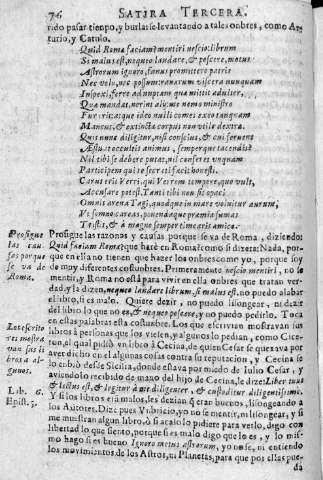 74 SATIRA TERCERA.
rido passar tiempo, y burlarse levantando a tales onbres, como Ar-
turio, y Catulo.
Quid Romæ faciam? mentiri nescio: librum
Si malus est, nequeo laudare, & poscere, motus
Astrorum ignoro, funus promittere patris
Nec volo, nec possum: ranarum viscera nunquam
Inspexi, ferre ad nuptam quæ mittit adulter,
Quæ mandat, norint alij: me nemo ministro
Fur erit: atque ideo nulli comes exeo tanquam
Mancus, & extinctæ corpus non vtile dextræ.
Quis nunc diligitur, nisi conscius, & cui fervent
Æstu at occultis animus, semperque tacendis?
Nil tibi se debere putat, nil conferet vnquam
Participem qui te secreti fecit honesti.
Carus erit Verri, qui Verrem tempore, quo vult,
Accusare potest. Tanti tibi non sit opaci
Omnis arena Tagi, quodque in mare volvitur aurum,
Vt somno careas, ponendaque præmia sumas
Tristis, & à magno semper timearis amico.
Prosigue las razones y causas porque se va de Roma, diziendo:
Quid faciam Romæ? que haré en Roma? como si dizera: Nada, por-
que en ella no tienen que hazer los onbres como yo, porque soy
de muy diferentes costunbres. Primeramente nescio mentiri, no se
mentir, y Roma no está para vivir en ella onbres que tratan ver-
dad, y la dizen, nequeo laudare librum, si malus est. no puedo alabar
el libro, si es malo. Quiere dezir, no puedo lisongear, ni dezir
del libro lo que no es, & nequeo poscere, y no puedo pedirlo. Toca
en estas palabras esta costunbre. Los que escrivian mostravan sus
libros à personas que los vielen, y algunos lo pedian, como Cice-
ron, el qual pidió vn libro à Cecina, de quien Cesar se quexava por
aver dicho en el algunas cosas contra su reputacion, y Cecina se
lo enbió desde Sicilia, donde estava por miedo de Iulio Cesar, y
aviendolo recibido de mano del hijo de Cecina, le dize: Liber tuus
& lectus est, & legitur à me diligenter, & custoditur diligentissimè.
Y si los libros eran malos, les dezian q̃ eran buenos, lisongeando a
los Autores. Dize pues Vnbricio, yo no se mentir, ni lisongear, y si
me muestran algun libro, ò si acaso lo pidiere para verlo, digo con
libertad lo que siento, porque si es malo digo que lo es, y lo mis-
mo hago si es bueno Ignoro motus astrorum, yo no se, ni entiendo
los movimientos de los Astros, ni Planetas, para que por ellas pue-
da
Prosigue
las cau-
sas porque
se va de
Roma.
Los escrito
res mostra
van sus li
bros a al-
gunos.
Lib. 6.
Epist. 5.